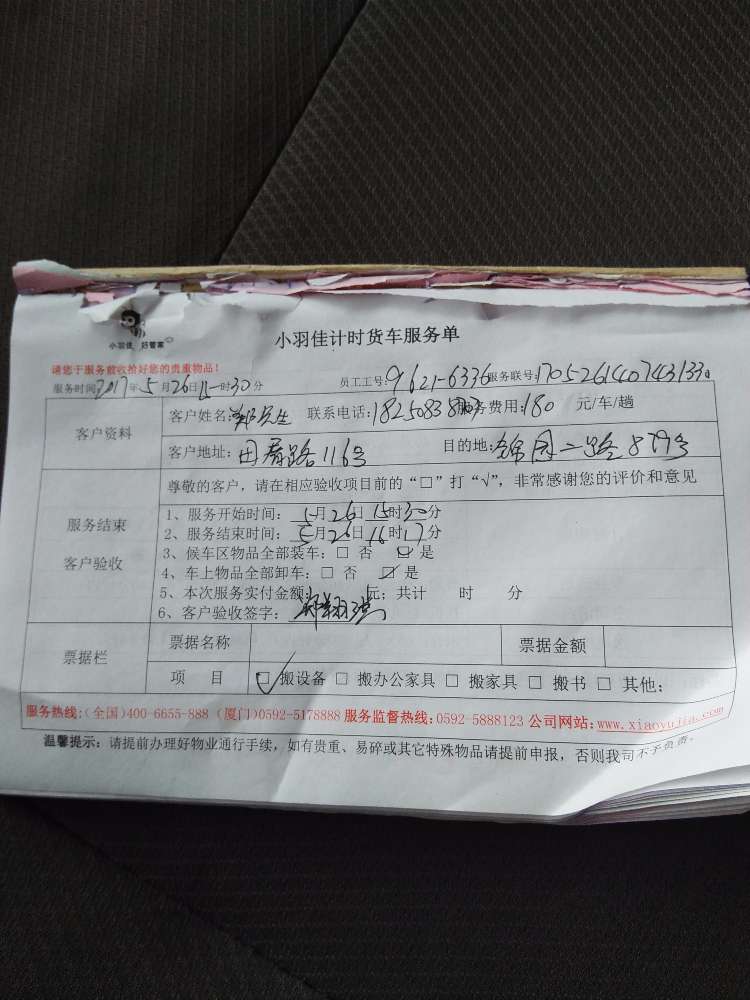 小羽佳 好管家
小羽佳计时货车服务单
请您于服务前收拾好您的贵重物品!
服务时间:2017年5月26日15时30分 员工工号:9621-6336 服务联号:170526140743133
客户资料
客户姓名:郑先生 联系电话: 服务费用:180 元/车/趟
客户地址:田春路116号 目的地:锦园二路879号
尊敬的客户,请在相应验收项目前的“□”打“√”,非常感谢您的评价和意见
服务结束
客户验收
1、服务开始时间:5月26日15时30分
2、服务结束时间:5月26日16时17分
3、候车区物品全部装车:□ 否 ☑ 是
4、车上物品全部卸车:□ 否 ☑ 是
5、本次服务实付金额: 元;共计 时 分
6、客户验收签字:
票据栏
票据名称 票据金额
项 目 ☑搬设备 □ 搬办公家具 □ 搬家具 □ 搬书 □ 其他:
服务热线:(全国)400-6655-888 (厦门)0592-5178888 服务监督热线:0592-5888123 公司网站:www.xiaoyujia.com
温馨提示:请提前办理好物业通行手续,如有贵重、易碎或其它特殊物品请提前申报,否则我司不予负责。